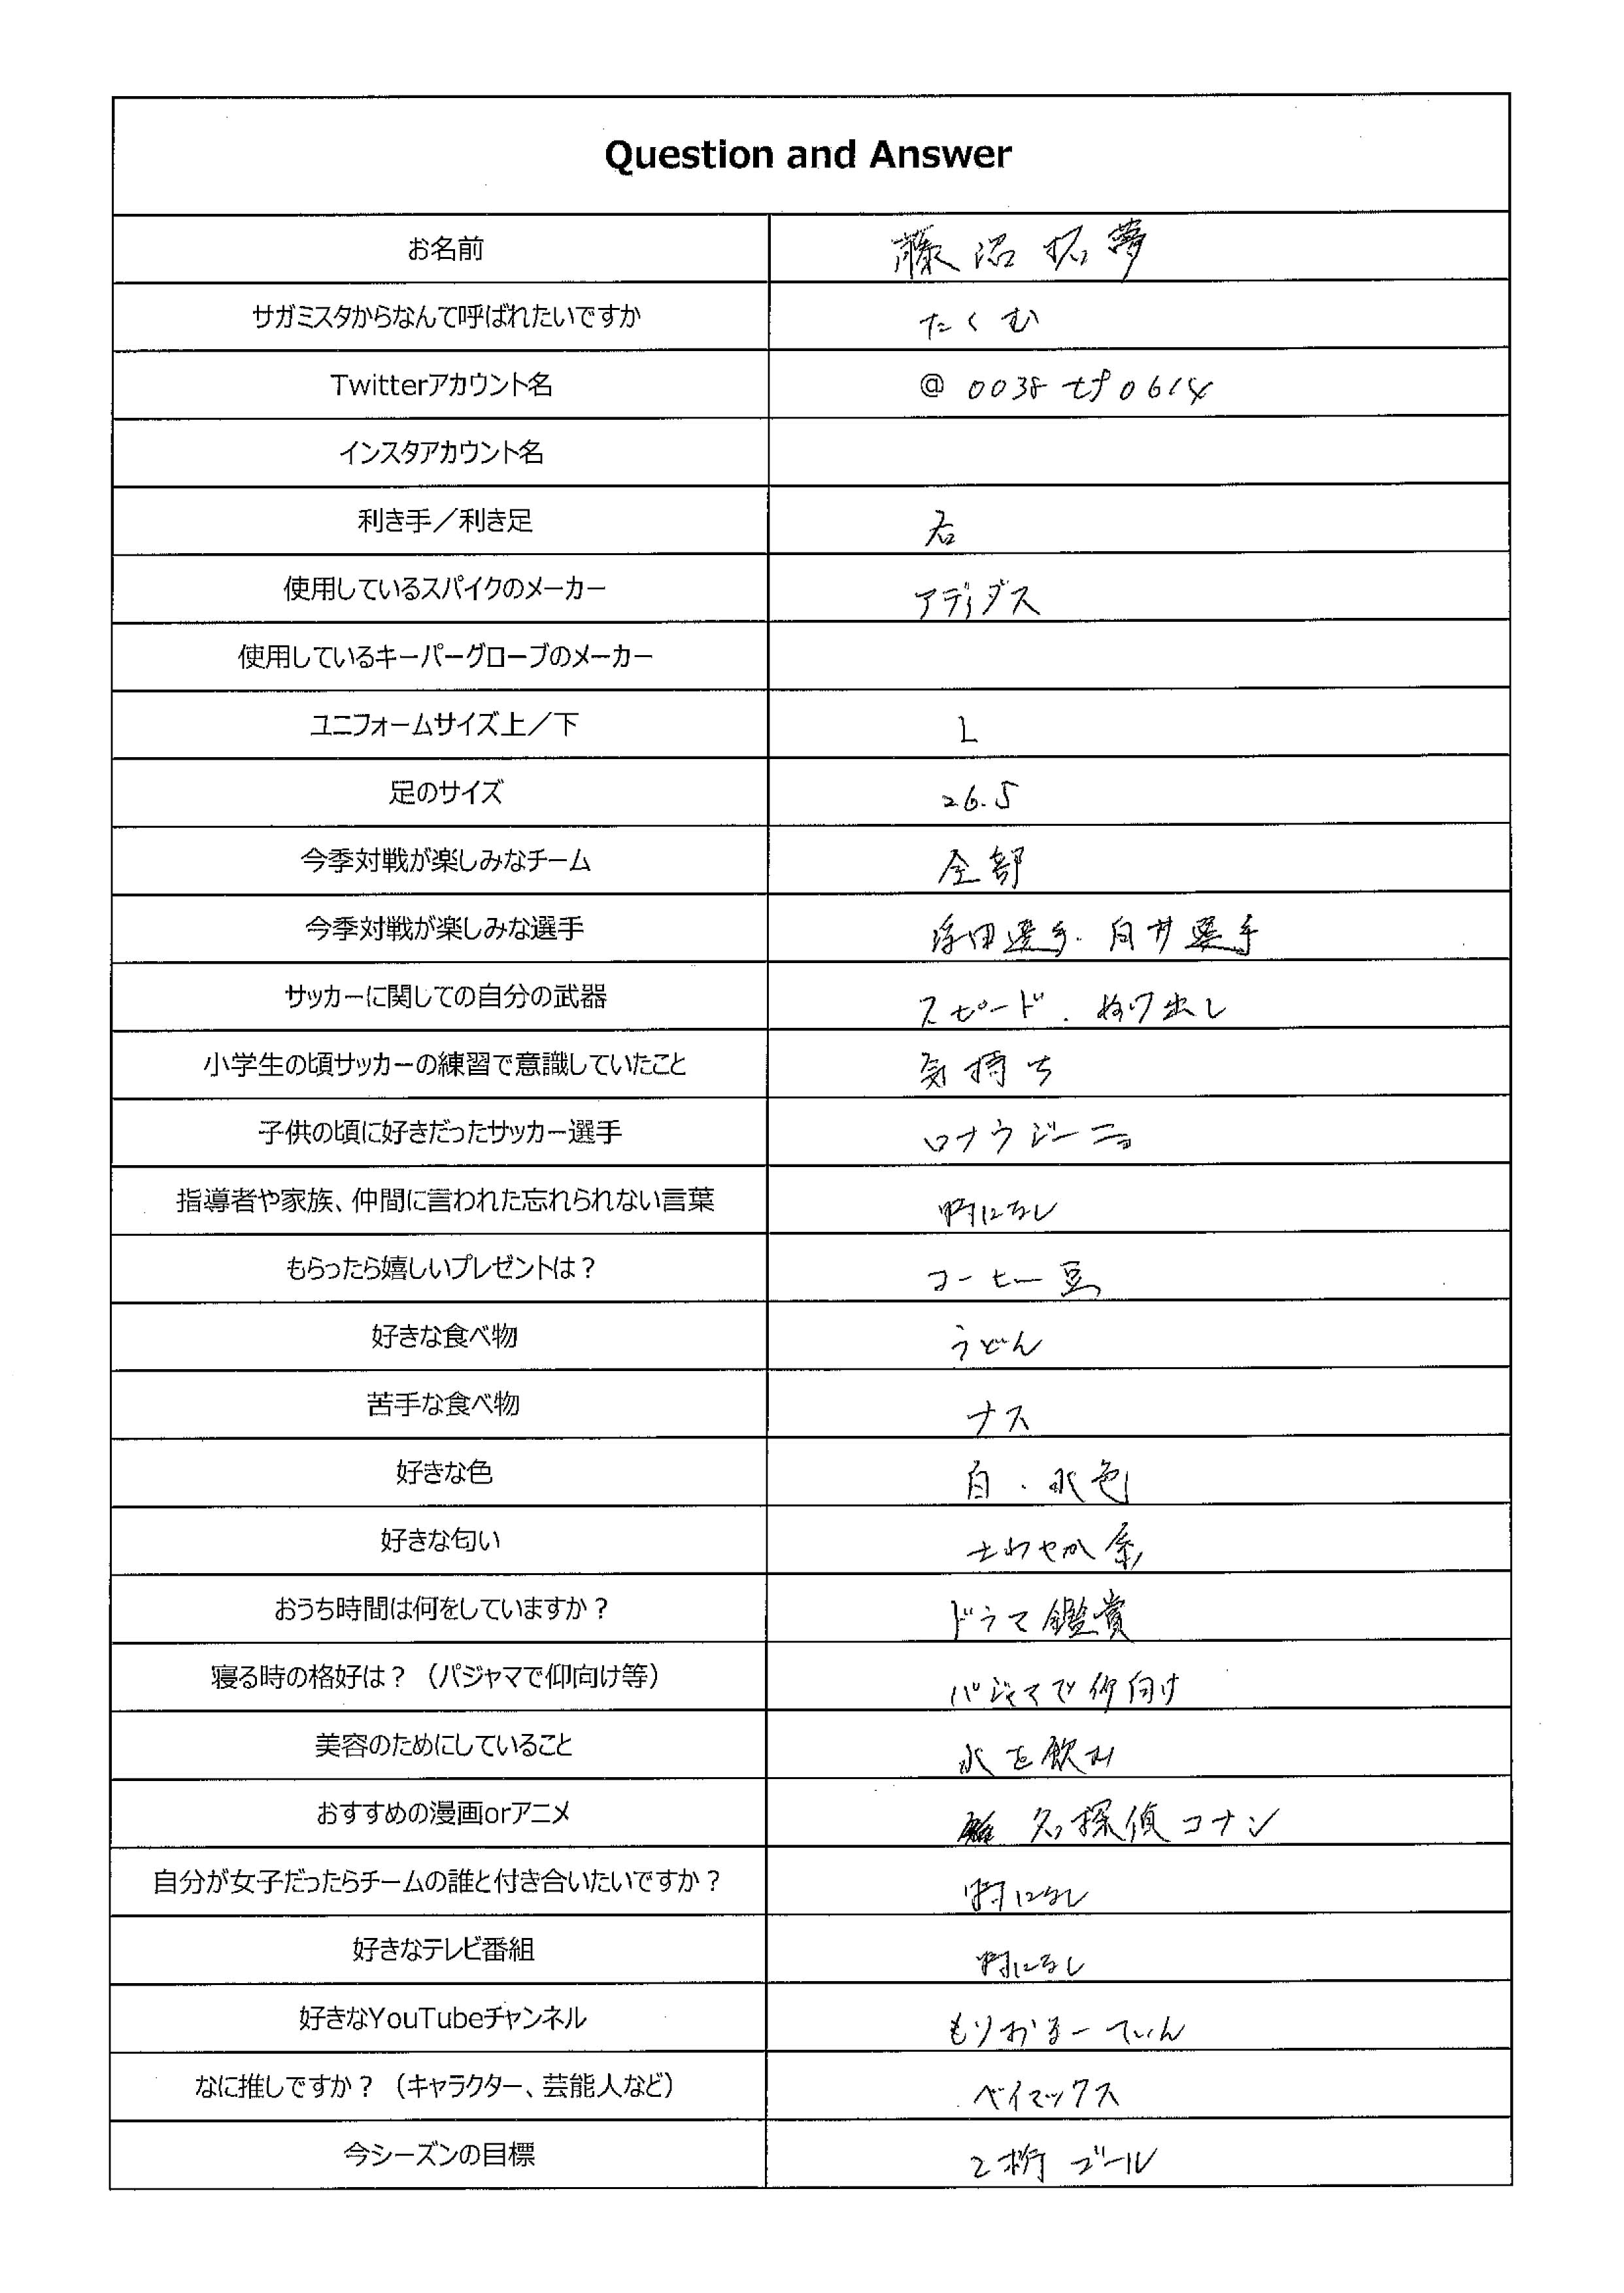 Question and Answer
お名前 藤沼拓夢
サガミスタからなんて呼ばれたいですか たくむ
Twitterアカウント名 @0038tf0614
インスタアカウント名
利き手／利き足 右
使用しているスパイクのメーカー アディダス
使用しているキーパーグローブのメーカー
ユニフォームサイズ上／下 L
足のサイズ 26.5
今季対戦が楽しみなチーム 全部
今季対戦が楽しみな選手 浮田選手.向井選手
サッカーに関しての自分の武器 スピード．抜け出し
小学生の頃サッカーの練習で意識していたこと 気持ち
子供の頃に好きだったサッカー選手 ロナウジーニョ
指導者や家族、仲間に言われた忘れられない言葉 特になし
もらったら嬉しいプレゼントは？ コーヒー豆
好きな食べ物 うどん
苦手な食べ物 ナス
好きな色 白．水色
好きな匂い さわやか系
おうち時間は何をしていますか？ ドラマ鑑賞
寝る時の格好は？（パジャマで仰向け等） パジャマで仰向け
美容のためにしていること 水を飲む
おすすめの漫画orアニメ 名探偵コナン
自分が女子だったらチームの誰と付き合いたいですか？ 特になし
好きなテレビ番組 特になし
好きなYouTubeチャンネル もりおるーてぃん
なに推しですか？（キャラクター、芸能人など） ベイマックス
今シーズンの目標 2桁ゴール